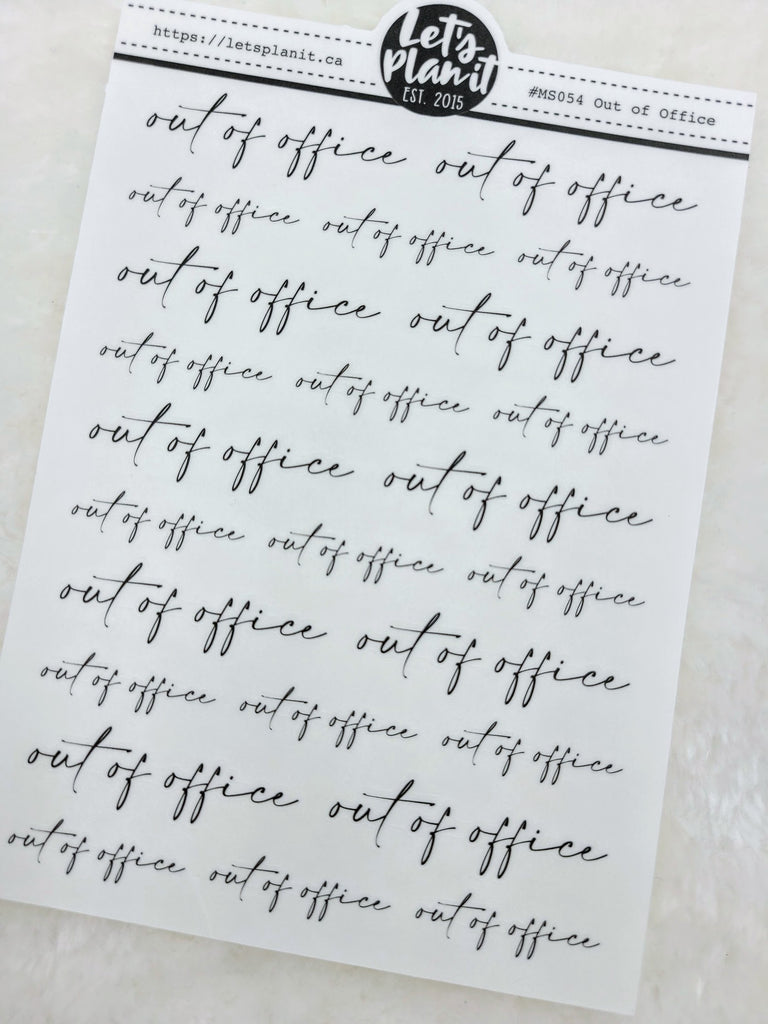 https://letsplanit.ca
Let's
Plan it
EST. 2015
#MS054 Out of Office
out of office out of office
out of office out of office out of office
out of office out of office
out of office out of office out of office
out of office out of office
out of office out of office out of office
out of office out of office
out of office out of office out of office
out of office out of office
out of office out of office out of office